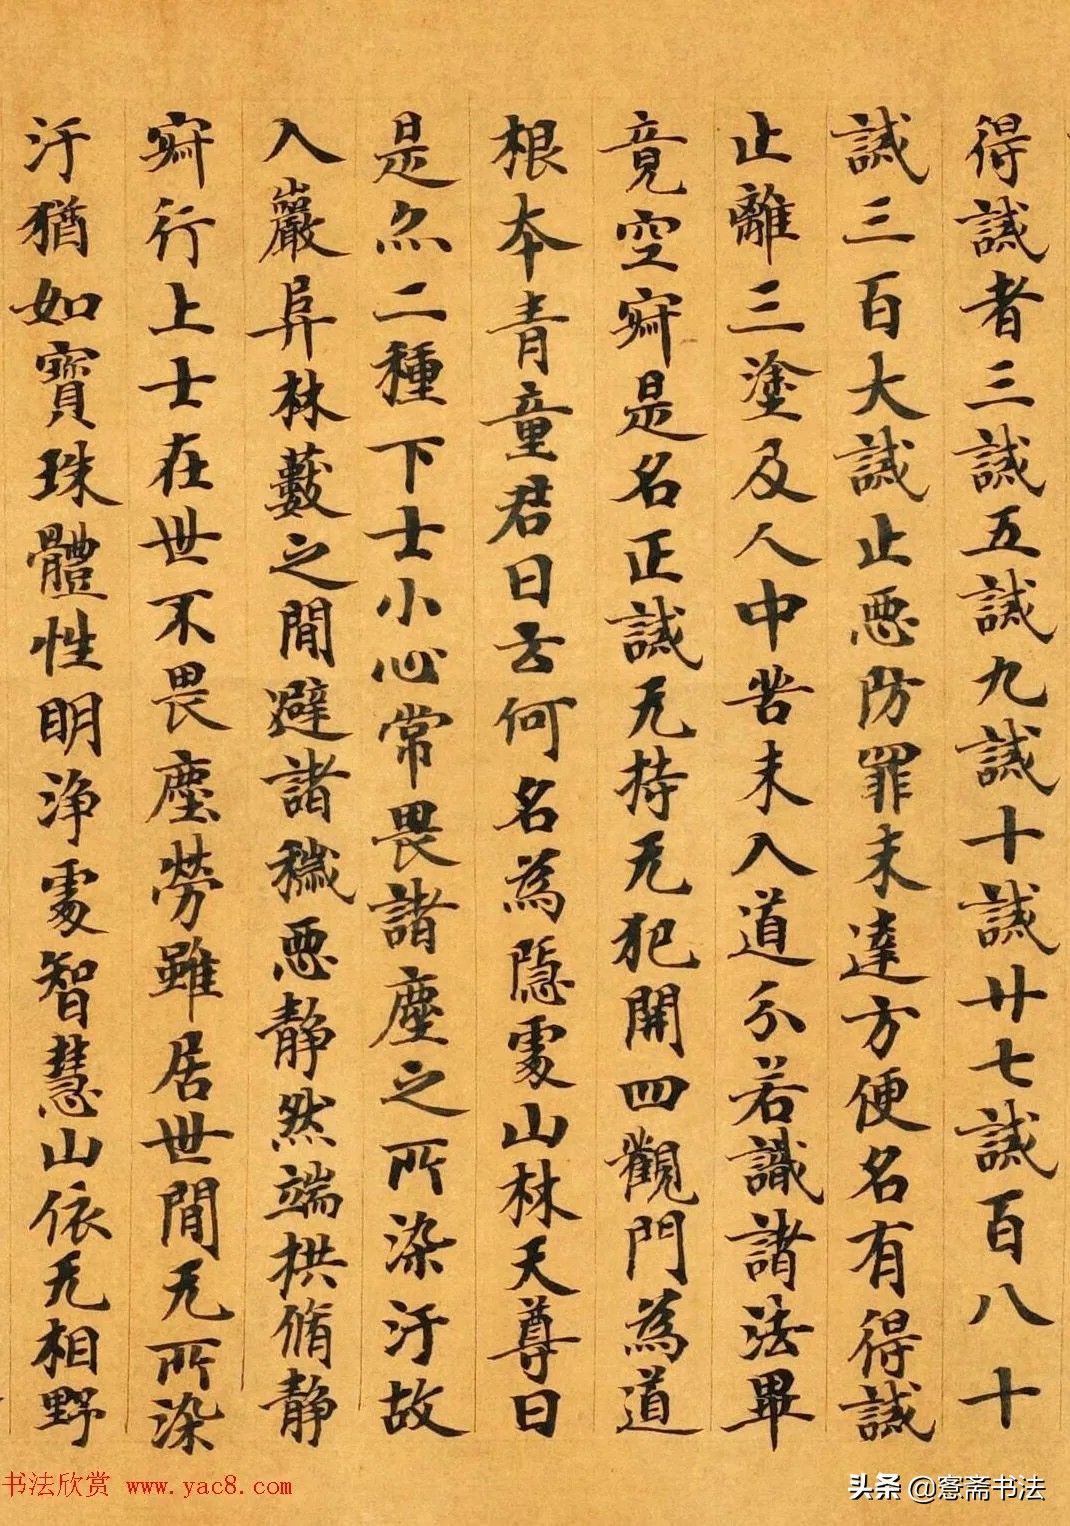 得誡者三誡五誡九誡十誡廿七誡百八十
誡三百大誡止惡防罪未達方便名有得誡
止離三塗及人中苦未入道分若識諸法畢
竟空寂是名正誡无持无犯開四觀門為道
根本青童君曰云何名為隱處山林天尊曰
是亦二種下士小心常畏諸塵之所染汙故
入巖阜林藪之間避諸穢惡静然端拱脩静
寂行上士在世不畏塵勞雖居世間无所染
汙猶如寶珠體性明淨處智慧山依无相野
书法欣赏 www.yac8.com
头条 @愙斋书法